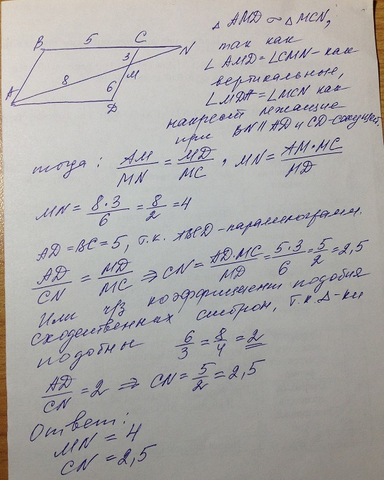 B 5 C N
3
M
8
6
A D
△AMD ∾ △MCN,
так как
∠AMD = ∠CMN - как
вертикальные,
∠MDA = ∠MCN как
накрест лежащие
при BN ∥ AD и CD - секущей.
тогда: AM/MN = MD/MC, MN = AM·MC/MD
MN = 8·3/6 = 8/2 = 4
AD = BC = 5, т.к. ABCD - параллелограмм.
AD/CN = MD/MC ⇒ CN = AD·MC/MD = 5·3/6 = 5/2 = 2,5
Или ч/з коэффициент подобия
сходственных сторон, т.к. △-ки
подобны 6/3 = 8/4 = 2
AD/CN = 2 ⇒ CN = 5/2 = 2,5
Ответ:
MN = 4
CN = 2,5